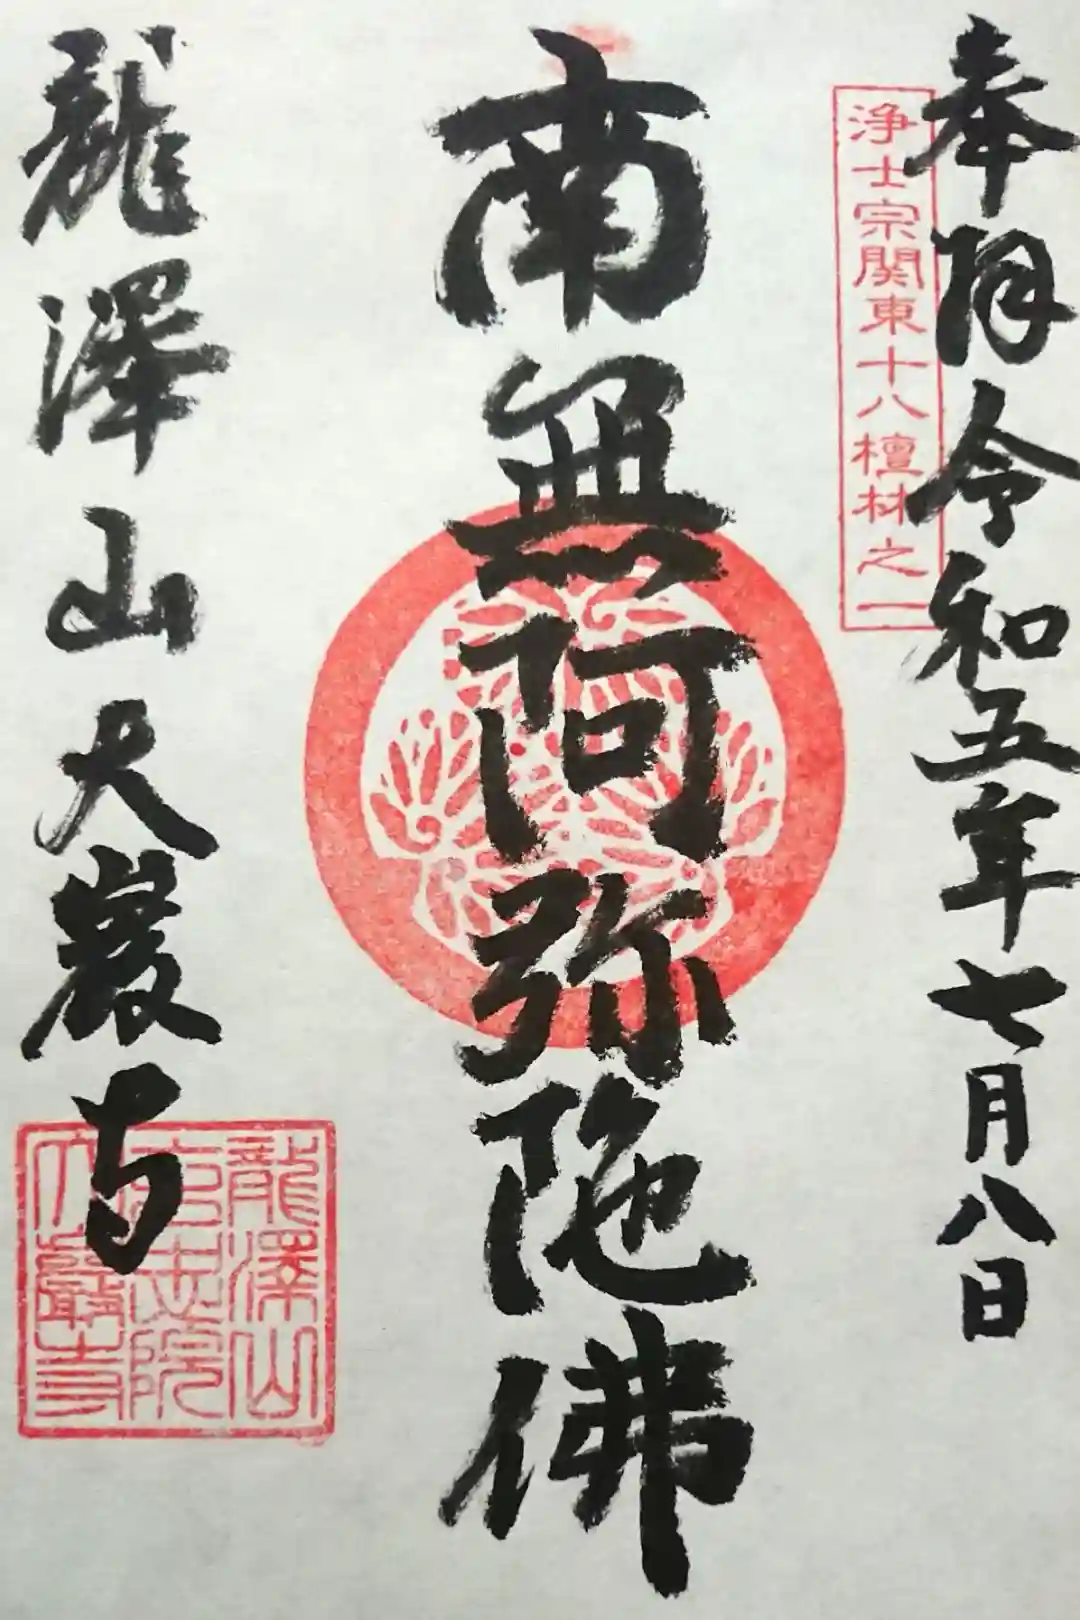 奉拝令和五年七月八日
浄土宗関東十八檀林之一
南無阿弥陀佛
龍澤山大巖寺
龍澤山
玄忠院
大巖寺